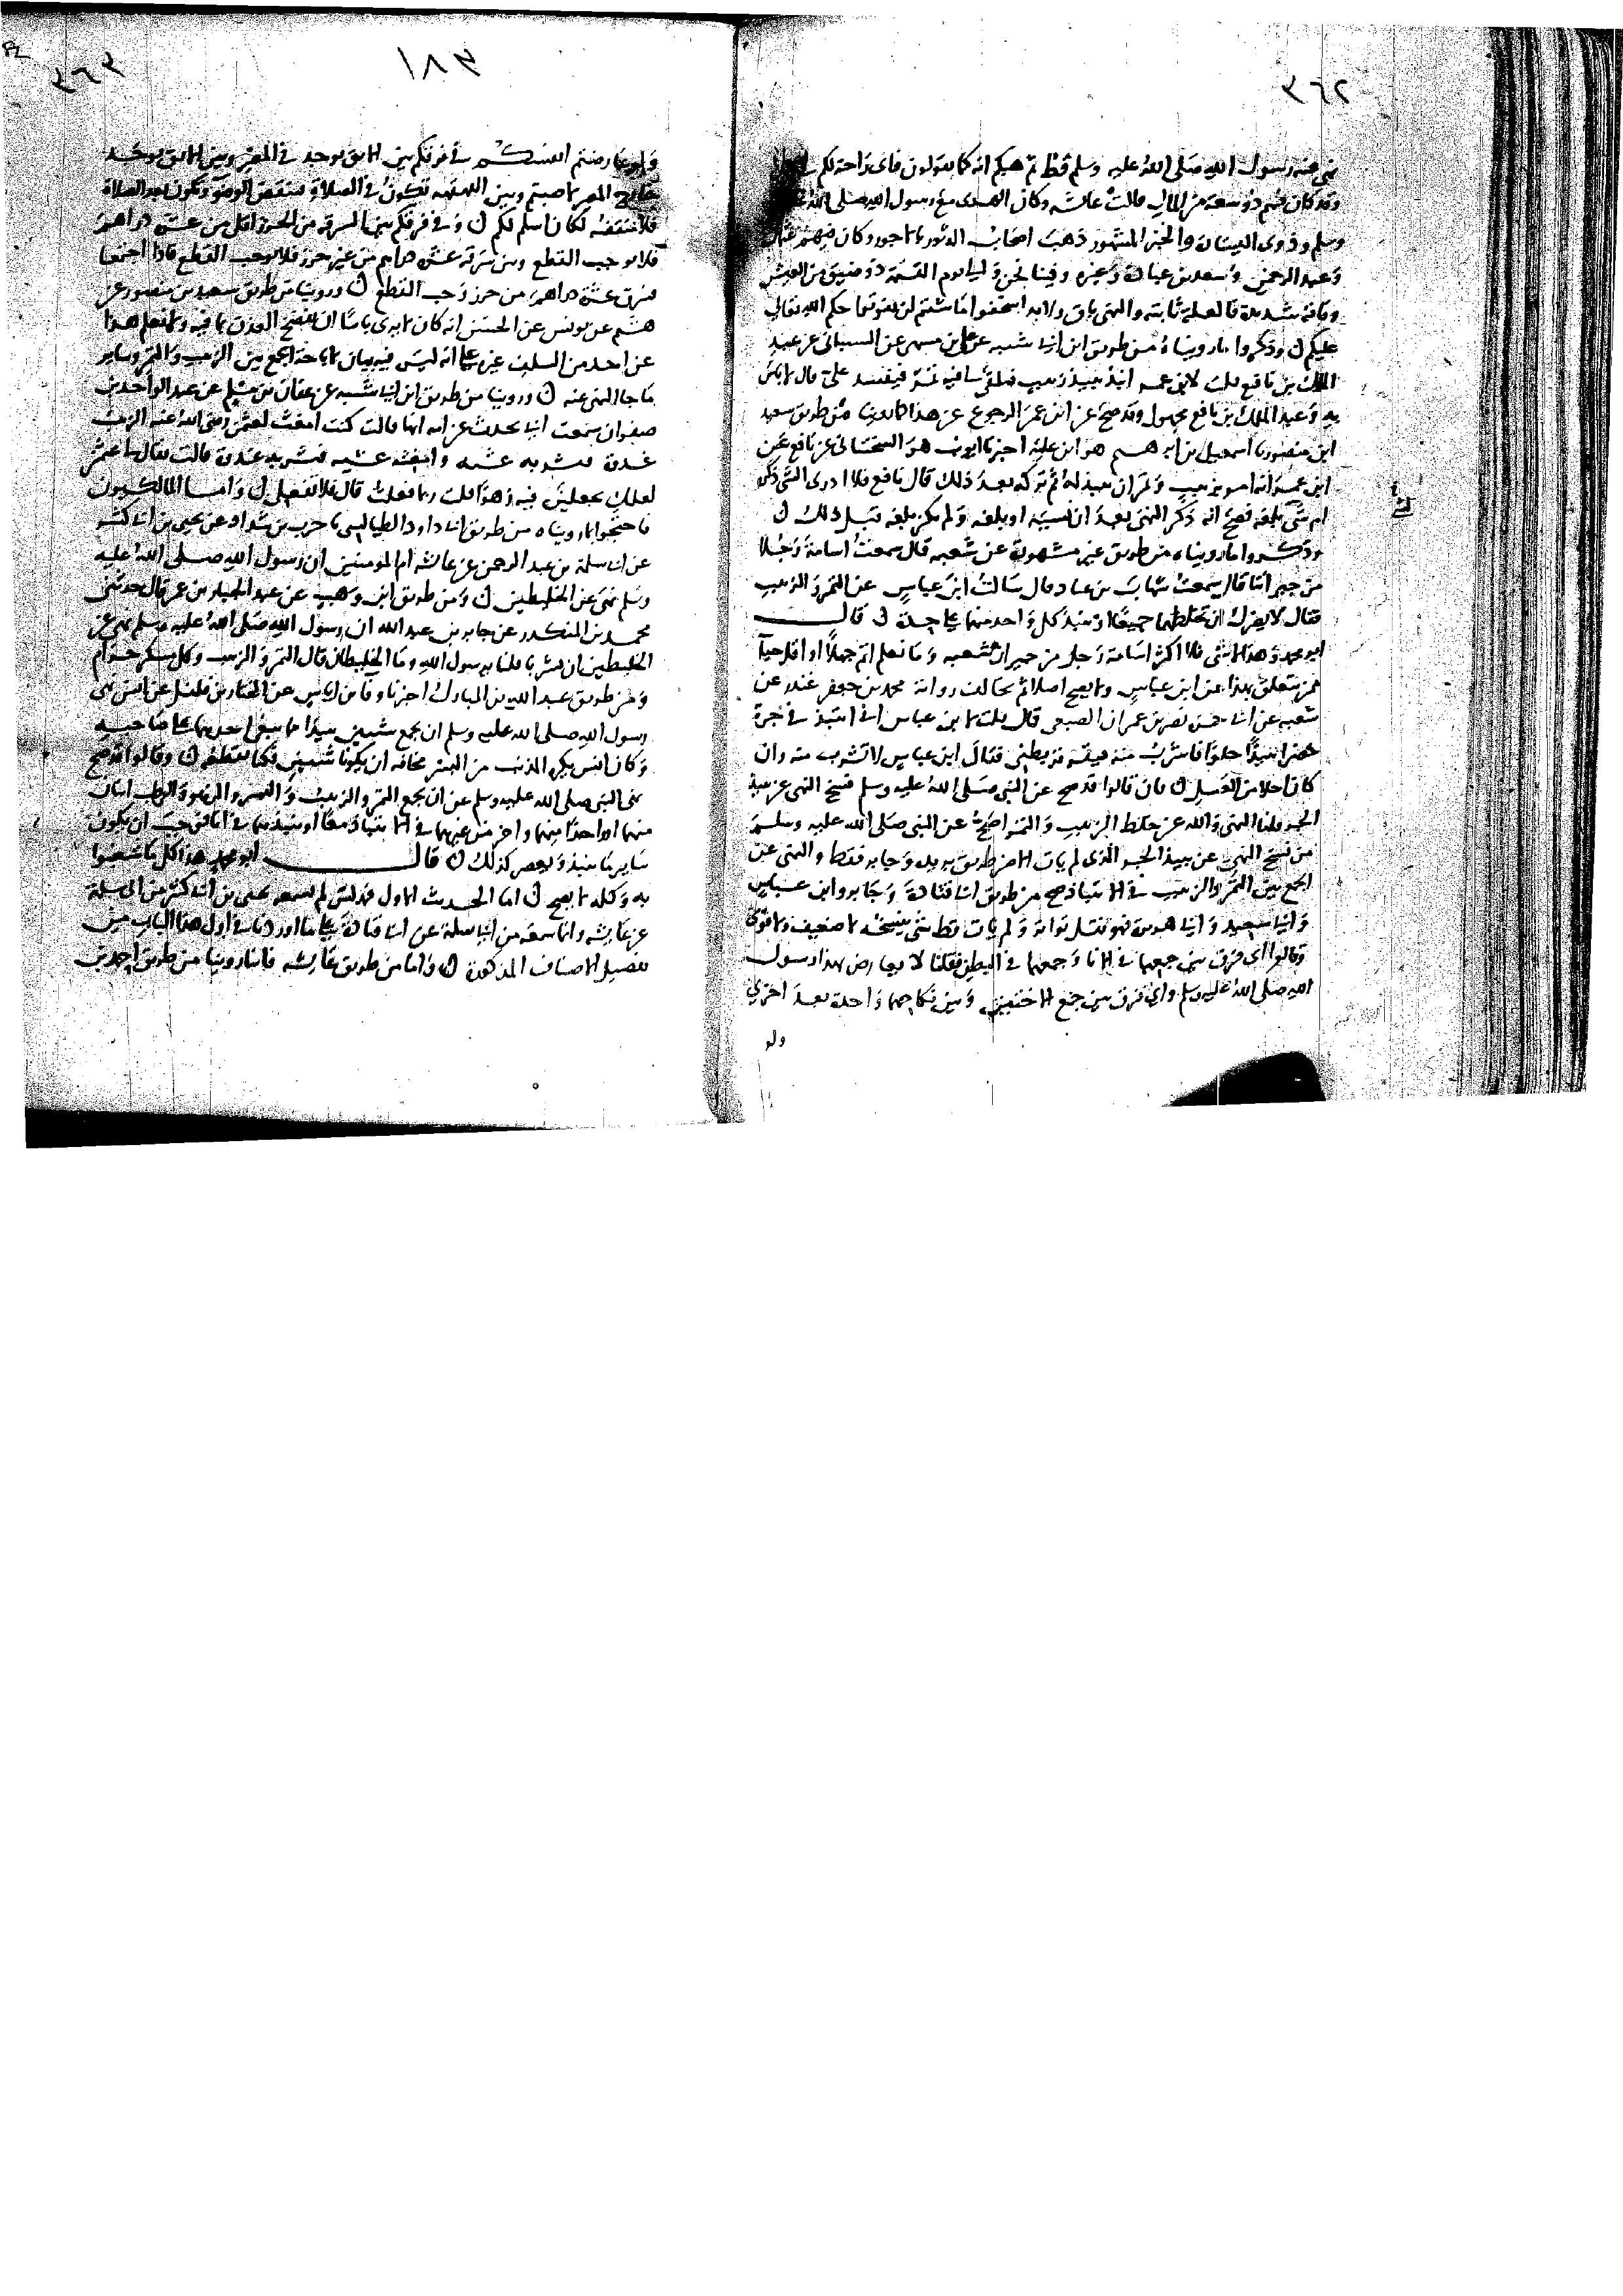 ٣٦٢
نهى عنه رسول الله صلى الله عليه وسلم قط ثم هبكم انه كما تقولون فاى راحة لكم في
وقد كان فيهم ذو سعة من المال مالت عائشه وكان الهدى مع رسول الله صلى الله عليه
وسلم وذوى اليسار والخبر المشهور ذهب اصحاب الدثور بالاجور وكان فيهم عثمن
وعبد الرحمن وسعد بن عبادة وغيره وفينا نحن ولله الى اليوم ذو ضيق من العيش
وفاقة شديدة فالعلة ثابته والنهى باق ولا بد اسخفوا ما شئتم لن تقوتوا حكم الله تعالى
عليكم ن وذكروا ما روينا من طريق ابن ابى شيبه عن على بن مسهر عن الشيبانى عن عبد
الملك بن نافع قلت لابن عمر انبذ نبيذ زبيب فيلقى لنا فيه تمر فيفسد على قال لا باس
به وعبد الملك بن نافع مجهول وقد صح عن ابن عمر الرجوع عن هذا كما روينا من طريق سعيد
ابن منصور نا اسمعيل بن ابرهيم هو ابن عليه اخبرنا ايوب هو السختيانى عن نافع عن
ابن عمر انه امر بزبيب وتمر ان ينبذ له ثم تركه بعد ذلك قال نافع فلا ادرى الشى ذكره
ام شى بلغه فصح انه ذكر النهى بعد ان نسيه او بلغه ولم يكن بلغه قبل ذلك ن
وذكروا ما رويناه من طريق غير مشهورة عن شعبه قال سمعت اسامة رجلا
من جيراننا قال سمعت شهاب بن عباد قال سالت ابن عباس عن التمر والزبيب
فقال لا يضرك ان تخلطهما جميعا او تنبذ كل واحد منهما على حدة ن قال
ابو محمد وهذا لا شى فلا اكثر اسامة رجل من جيران شعبه وما نعلم اتم جهلا او اقل حيآ
ممن يتعلق بهذا عن ابن عباس ولا يصح اصلا ثم يخالف رواية محمد بن جعفر غندر عن
شعبه عن ابى جمرة نصر بن عمران الضبعى قال قلت لابن عباس انى انتبذ في جرة
خضرا نبيذا حلوا فاشرب منه فيقرقر بطنى فقال ابن عباس لا تشرب منه وان
كان احلا من العسل ن فان قالوا قد صح عن النبى صلى الله عليه وسلم فسخ النهى عن نبيذ
الجر قلنا النهى والله عن خلط الزبيب والتمر اصح عن النبى صلى الله عليه وسلم
من نسخ النهى عن نبيذ الجر الذى لم يات الا من طريق بريده وجابر فقط والنهى عن
الجمع بين التمر والزبيب في الانتباذ صح من طريق ابى قتادة وجابر وابن عباس
وابى سعيد وابى هريرة فهو نقل تواتر ولم يات قط شى ينسخه لا ضعيف ولا قوى
وقالوا اى فرق بين جمعهما في الانا وجمعهما في البطن فقلنا لا يعارض بهذا رسول
الله صلى الله عليه وسلم واى فرق بين جمع الاختين وبين نكاحهما واحدة بعد اخرى
ولو
١٨٤
٣٦٢
ولو عارضتم انفسكم في فرقكم بين لا بق يوجد في المصر وبين لا بق يوجد
خارج المصر لاصبتم وبين القهقهه تكون في الصلاة فتنقض الوضو وتكون بعد الصلاة
فلا تنقضه لكان اسلم لكم ن وفي فرقكم بين السرقه من الحرز اقل من عشرة دراهم
فلا توجب القطع وبين سرقة عشرة دراهم من غير حرز فلا توجب القطع فاذا اجتمعا
فسرق عشرة دراهم من حرز وجب القطع ن وروينا من طريق سعيد بن منصور عن
هشيم عن يونس عن الحسن انه كان لا يرى باسا ان يفضح العذق بما فيه ولا نعلم هذا
عن احد من السلف غير على انه ليس فيه بيان لاباحة الجمع بين الزبيب والتمر وساير
ما جا النهى عنه ن وروينا من طريق ابن ابى شيبه عن عفان بن مسلم عن عبد الواحد بن
صفوان سمعت ابى يحدث عن امه انها قالت كنت امغث لعثمن رضى الله عنه الزبيب
غدوة فيشربه عشيه وامغثه عشيه فيشربه غدوة قالت فقال لها عثمن
لعلك تجعلين فيه زهوا قلت ربما فعلت قال فلا تفعلى ن واما المالكيون
فاحتجوا بما رويناه من طريق ابى داود الطيالسى نا حرب بن شداد عن يحيى بن ابى كثير
عن ابى سلمة بن عبد الرحمن عن عائشه ام المومنين ان رسول الله صلى الله عليه
وسلم نهى عن الخليطين ن ومن طريق ابن وهب عن عبد الجبار بن عمر قال حدثنى
محمد بن المنكدر عن جابر بن عبد الله ان رسول الله صلى الله عليه وسلم نهى عن
الخليطين ان يشربا قلنا يرسول الله وما الخليطان قال التمر والزبيب وكل مسكر حرام
ومن طريق عبد الله بن المبارك اخبرنا وقا بن اياس عن المختار بن فلفل عن انس نهى
رسول الله صلى الله عليه وسلم ان يجمع شيئين نبيذا مما يبغى احدهما على صاحبه
وكان انس يكره المذنب من البسر مخافه ان يكونا شيئين فكنا نقطعه ن وقالوا قد صح
نهى النبى صلى الله عليه وسلم عن ان يجمع التمر والزبيب والبسر والزهو والرطب اثنان
منهما او واحدا منهما واخر من غيرهما في الانتباذ معا او نبيذهما في انا فوجب ان يكون
ساير ما ينبذ ويعصر كذلك ن قال ابو محمد هذا كل ما شغبوا
به وكله لا يصح ن اما الحديث الاول فدلس لم يسمعه يحيى بن ابى كثير من ابى سلمة
عن عايشه وانما سمعه من ابى سلمة عن ابى قتادة على ما اوردنا في اول هذا الباب من
تفصيل الاصناف المذكورة ن واما من طريق عايشه فاننا روينا من طريق احمد بن